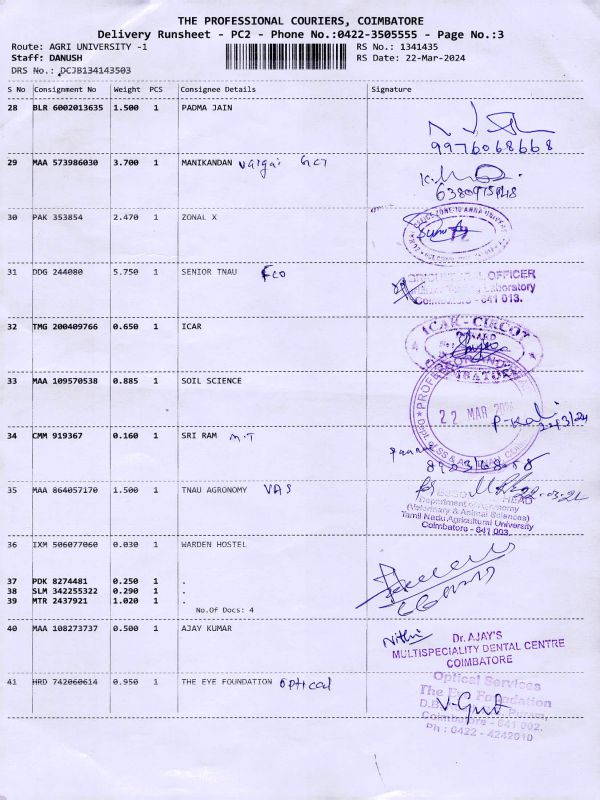 THE PROFESSIONAL COURIERS, COIMBATORE
Delivery Runsheet - PC2 - Phone No.:0422-3505555 - Page No.:3
Route: AGRI UNIVERSITY -1 RS No.: 1341435
Staff: DANUSH RS Date: 22-Mar-2024
DRS No.: DCJB134143503
S No Consignment No Weight PCS Consignee Details Signature
28 BLR 6002013635 1.500 1 PADMA JAIN
9976068668
29 MAA 573986030 3.700 1 MANIKANDAN
30 PAK 353854 2.470 1 ZONAL X
31 DDG 244080 5.750 1 SENIOR TNAU FCO
OFFICER
Laboratory
Coimbatore - 641 013.
32 TMG 200409766 0.650 1 ICAR
ICAR - CIRCOT
33 MAA 109570538 0.885 1 SOIL SCIENCE
22 MAR
P. Kali
34 CMM 919367 0.160 1 SRI RAM M.T
35 MAA 864057170 1.500 1 TNAU AGRONOMY VAS
HEAD
Department of Agronomy
(Veterinary & Animal Sciences)
Tamil Nadu Agricultural University
Coimbatore - 641 003.
36 IXM 506077060 0.030 1 WARDEN HOSTEL
37 PDK 8274481 0.250 1 .
38 SLM 342255322 0.290 1 .
39 MTR 2437921 1.020 1 .
No.Of Docs: 4
40 MAA 108273737 0.500 1 AJAY KUMAR
Nithi
Dr. AJAY'S
MULTISPECIALITY DENTAL CENTRE
COIMBATORE
41 HRD 742060614 0.950 1 THE EYE FOUNDATION Optical
Optical Services
The Eye Foundation
Coimbatore - 641 002.
Ph : 0422 - 4242010